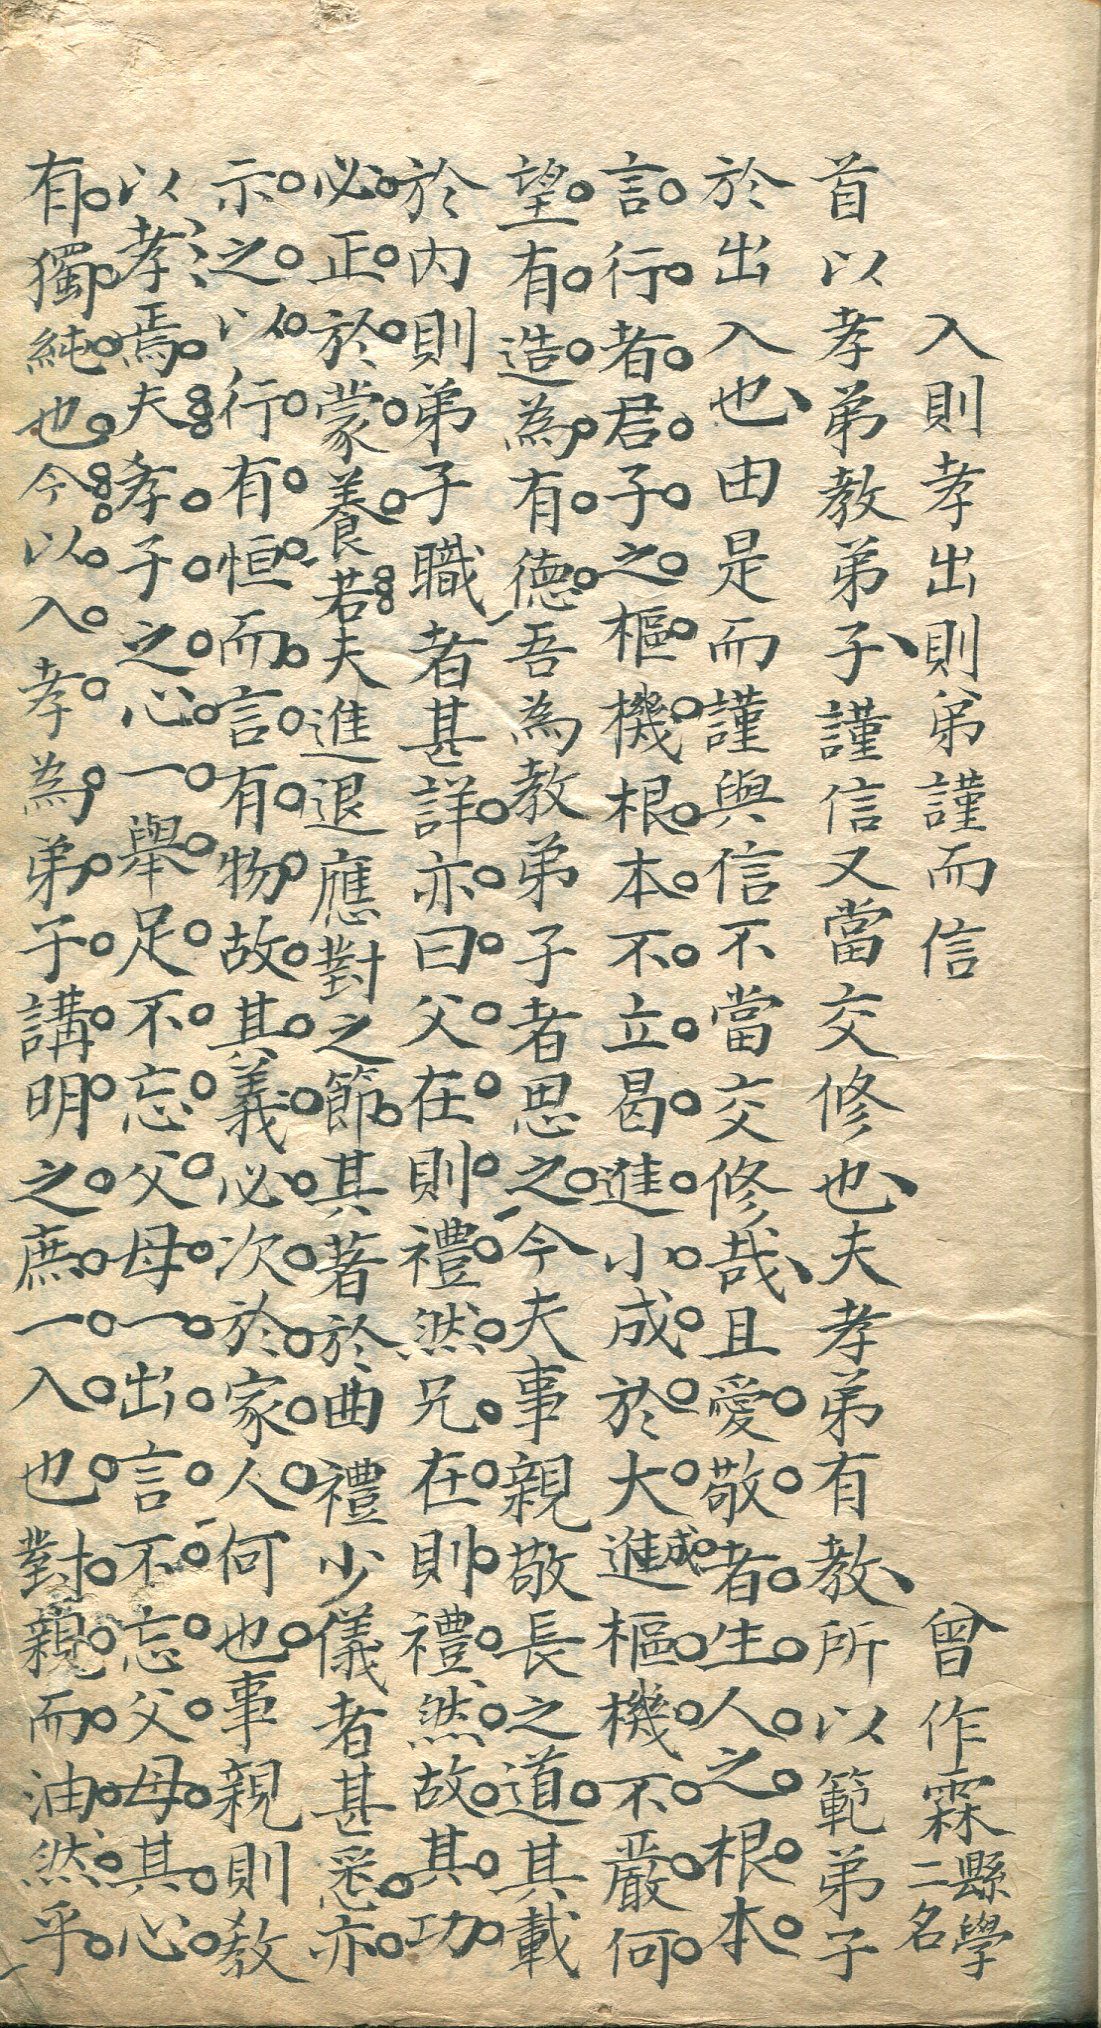 入則孝出則弟謹而信　曾作霖縣學二名
首以孝弟教弟子謹信又當交修也夫孝弟有教所以範弟子
於出入也由是而謹與信不當交修哉且愛敬者生人之根本
言行者君子之樞機根本不立曷進小成於大成進樞機不嚴何
望有造為有德吾為教弟子者思之今夫事親敬長之道其載
於內則弟子職者甚詳亦曰父在則禮然兄在則禮然故其功
必正於蒙養若夫進退應對之節其著於曲禮少儀者甚悉亦
示之以行有恒而言有物故其義必次於家人何也事親則教
以孝焉夫孝子之心一舉足不忘父母一出言不忘父母其心
有獨純也今以入孝為弟子講明之庶一入也對親而油然乎